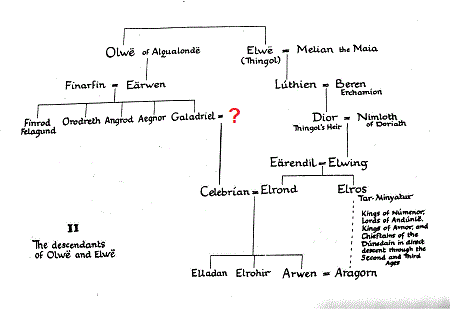 Olwë of Alqualondë
Elwë = Melian the Maia
(Thingol)
Finarfin = Eärwen
Lúthien = Beren
Erchamion
Finrod
Felagund
Orodreth Angrod Aegnor Galadriel = ?
Dior = Nimloth
Thingol's Heir
of Doriath
Eärendil = Elwing
Celebrían = Elrond
Elros
Tar-Minyatur
Kings of Númenor,
Lords of Andúnië,
Kings of Arnor, and
Chieftains of the
Dúnedain in direct
descent through the
Second and Third
Ages
II
The descendants
of Olwë and Elwë
Elladan Elrohir Arwen = Aragorn